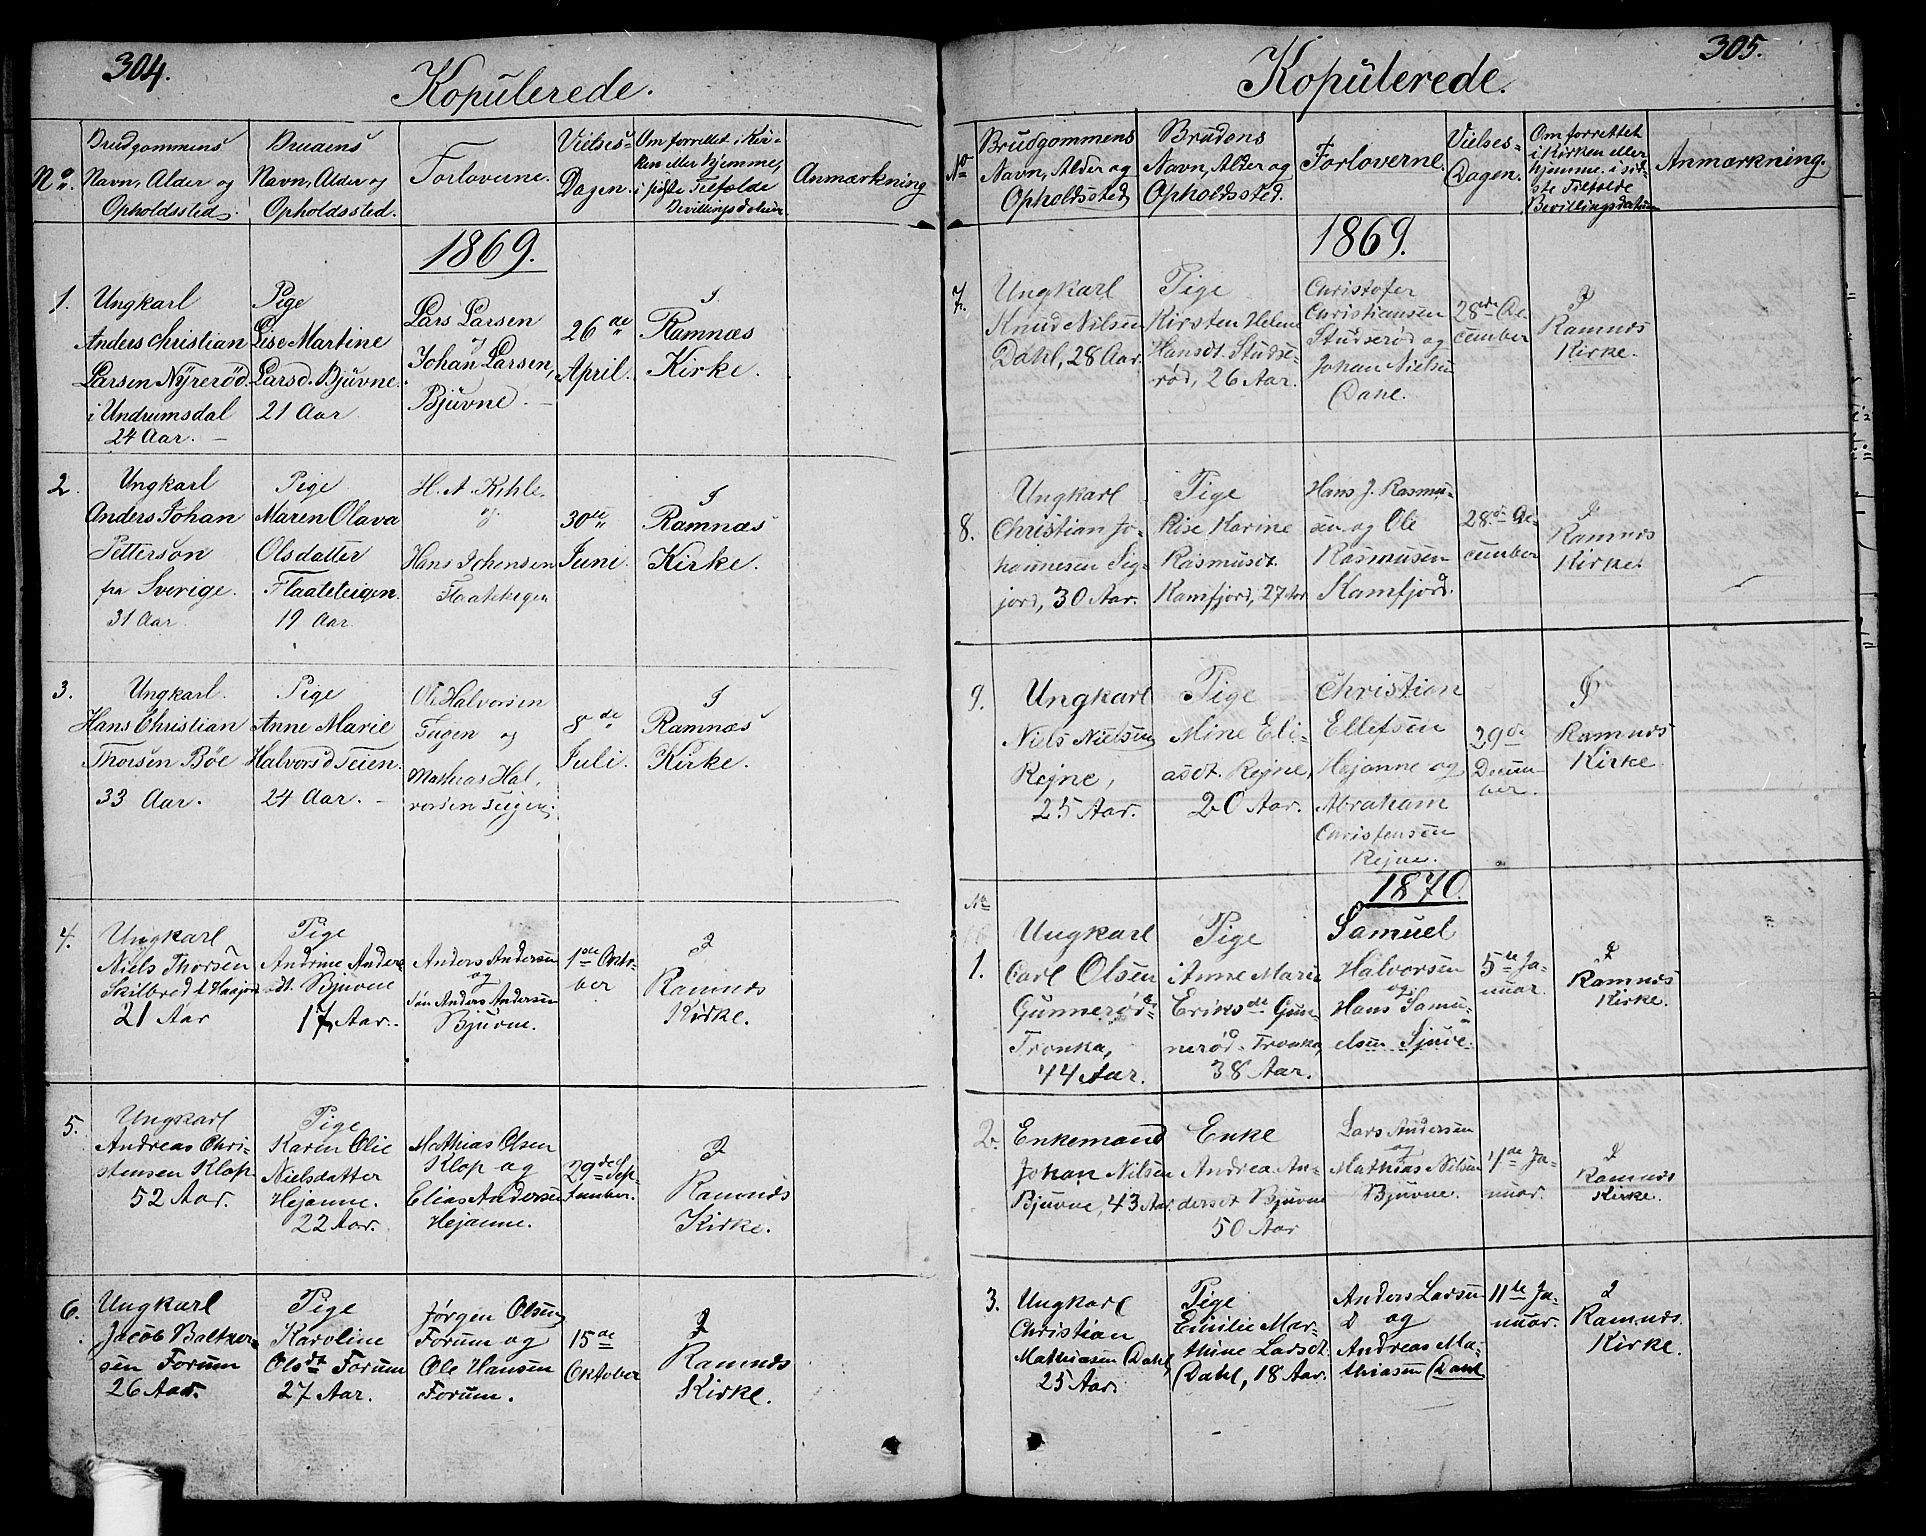 304.
Kopülerede.
No.
Brudgommens
Navn, Alder og
Opholdssted.
Brudens
Navn, Alder og
Opholdssted.
Forloverne.
Vielses-
Dagen.
Om forrettet i Kir-
ken eller hjemme,
i sidste Tilfælde
Bevillingsdatum
Anmærkning
1869.
1.
Ungkarl
Anders Christian
Larsen Nÿrerød
i Undrumsdal
24 Aar. –
Pige
Lise Martine
Larsd. Bjüvne.
21 Aar
Lars Larsen
og
Johan Larsen,
Bjüvne. –
26 de
April.
I
Ramnæs
Kirke.
2.
Ungkarl
Anders Johan
Petterson
fra Sverige.
31 Aar.
Pige
Maren Olava
Olsdatter
Flaateteigen.
19 Aar.
H. A. Kihle
og
Hans Johensen
Flaateteigen
30 te
Juni.
I
Ramnæs
Kirke.
3.
Ungkarl.
Hans Christian
Thorsen Böe
33 Aar.
Pige
Anne Marie
Halvorsd Teien.
24 Aar. –
Ole Halvorsen
Teigen og
Mathias Hal.
vorsen Teigen.
8 de
Juli.
I
Ramnæs
Kirke.
4.
Ungkarl
Niels Thorsen
Skilbred
21 Aar
Pige
Andrine Anders
dt. Bjuvne
17 Aar.
Anders Andersen
og
Søn Anders Andersen
Bjuvne.
1 de Okto-
ber
I
Ramnæs
Kirke.
5.
Ungkarl
Andreas Chri-
stensen Klop
52 Aar.
Pige
Karen Olie
Nielsdatter
Hejanne.
22 Aar.
Mathias Olsen
Klop og
Elias Andersen
Hejanne.
29 de Sep-
tember.
I
Ramnæs
Kirke.
6.
Ungkarl
Jacob Baltzer-
sen Forum
26 Aar.
Pige
Karoline
Olsdt Forum
27 Aar.
Jørgen Olsen
Forum og
Ole Hansen
Forum.
15 de
Oktober
I
Ramnæs
Kirke.
305.
Kopülerede.
No
Brudgommens
Navn, Alder og
Opholdssted
Brudens
Navn, Alder og
Opholdssted.
Forloverne.
Vielses-
Dagen.
Om forrettet
i Kirken eller
hjemme. i sid-
ste Tilfælde
Bevillingsdatum
Anmærkning.
1869.
7.
Ungkarl
Knud Nilsen
Dahl, 28 Aar.
Pige
Kirsten Helene
Hansdt. Studse-
rød, 26 Aar.
Christofer
Christiansen
Studserød og
Johan Nielsen
Dahl.
28de De-
cember
I
Ramnæs
Kirke.
8.
Ungkarl
Christian Jo-
hannesen Sig-
jord, 30 Aar.
Pige
Lise Karine
Rasmusdt.
Kamfjord, 27 Aar
Hans J. Rasmu-
sen og Ole
Rasmusen
Kamfjord.
28. de De-
cember
I
Ramnæs
Kirke.
9.
Ungkarl
Niels Nielsen
Rejne,
25 Aar.
Pige
Mine Eli-
asdt. Rejne,
20 Aar.
Christian
Ellefsen
Hejanne og
Abraham
Christensen
Rejne.
29 de
Decem-
ber.
I
Ramnæs
Kirke.
1870.
No
1.
Ungkarl
Carl Olsen
Gunnerød-
Fronka,
44 Aar.
Pige
Anne Marie
Eriksdt. Gun-
nerød. Fronka,
38 Aar.
Samuel
Halvorsen
og
Hans Samu-
elsen Sjüve.
5 te Ja-
nuar.
I
Ramnæs
Kirke.
2.
Enkemand
Johan Nilsen
Bjuvne, 43 Aar.
Enke
Andrea An-
dersdt Bjuvne
50 Aar
Lars Andersen
og
Mathias Nilsen
Bjuvne.
7 de Ja-
nuar.
I
Ramnæs
Kirke.
3.
Ungkarl
Christian
Mathiasen Dahl,
25 Aar.
Pige
Emilie Mar-
thine Larsdt.
Dahl, 18 Aar.
Anders Larsen
D og
Andreas Ma-
thiasen Dahl
11 te Ja-
nuar.
I
Ramnæs
Kirke.